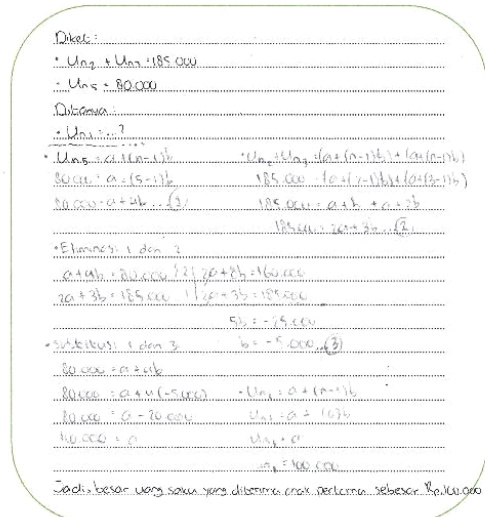 Diket :
• Un₂ + Un₃ = 185.000
• Un₅ = 80.000
Ditanya :
• Un₁ = ...?
• Un₅ = a + (n-1)b
80.000 = a + (5-1)b
80.000 = a + 4b ...(1)
• Un₂ + Un₃ = (a + (n-1)b) + (a + (n-1)b)
185.000 = (a + (2-1)b) + (a + (3-1)b)
185.000 = a + b + a + 2b
185.000 = 2a + 3b ...(2)
• Eliminasi 1 dan 2
a + 4b = 80.000 |2| 2a + 8b = 160.000
2a + 3b = 185.000 |1| 2a + 3b = 185.000
5b = -25.000
b = -5.000 ...(3)
• Substitusi 1 dan 3
80.000 = a + 4b
80.000 = a + 4(-5.000)
80.000 = a - 20.000
= a
• Un₁ = a + (n-1)b
Un₁ = a + (0)b
Un₁ = a
Un₁ = 100.000
Jadi, besar uang saku yang diterima anak pertama sebesar Rp.100.000